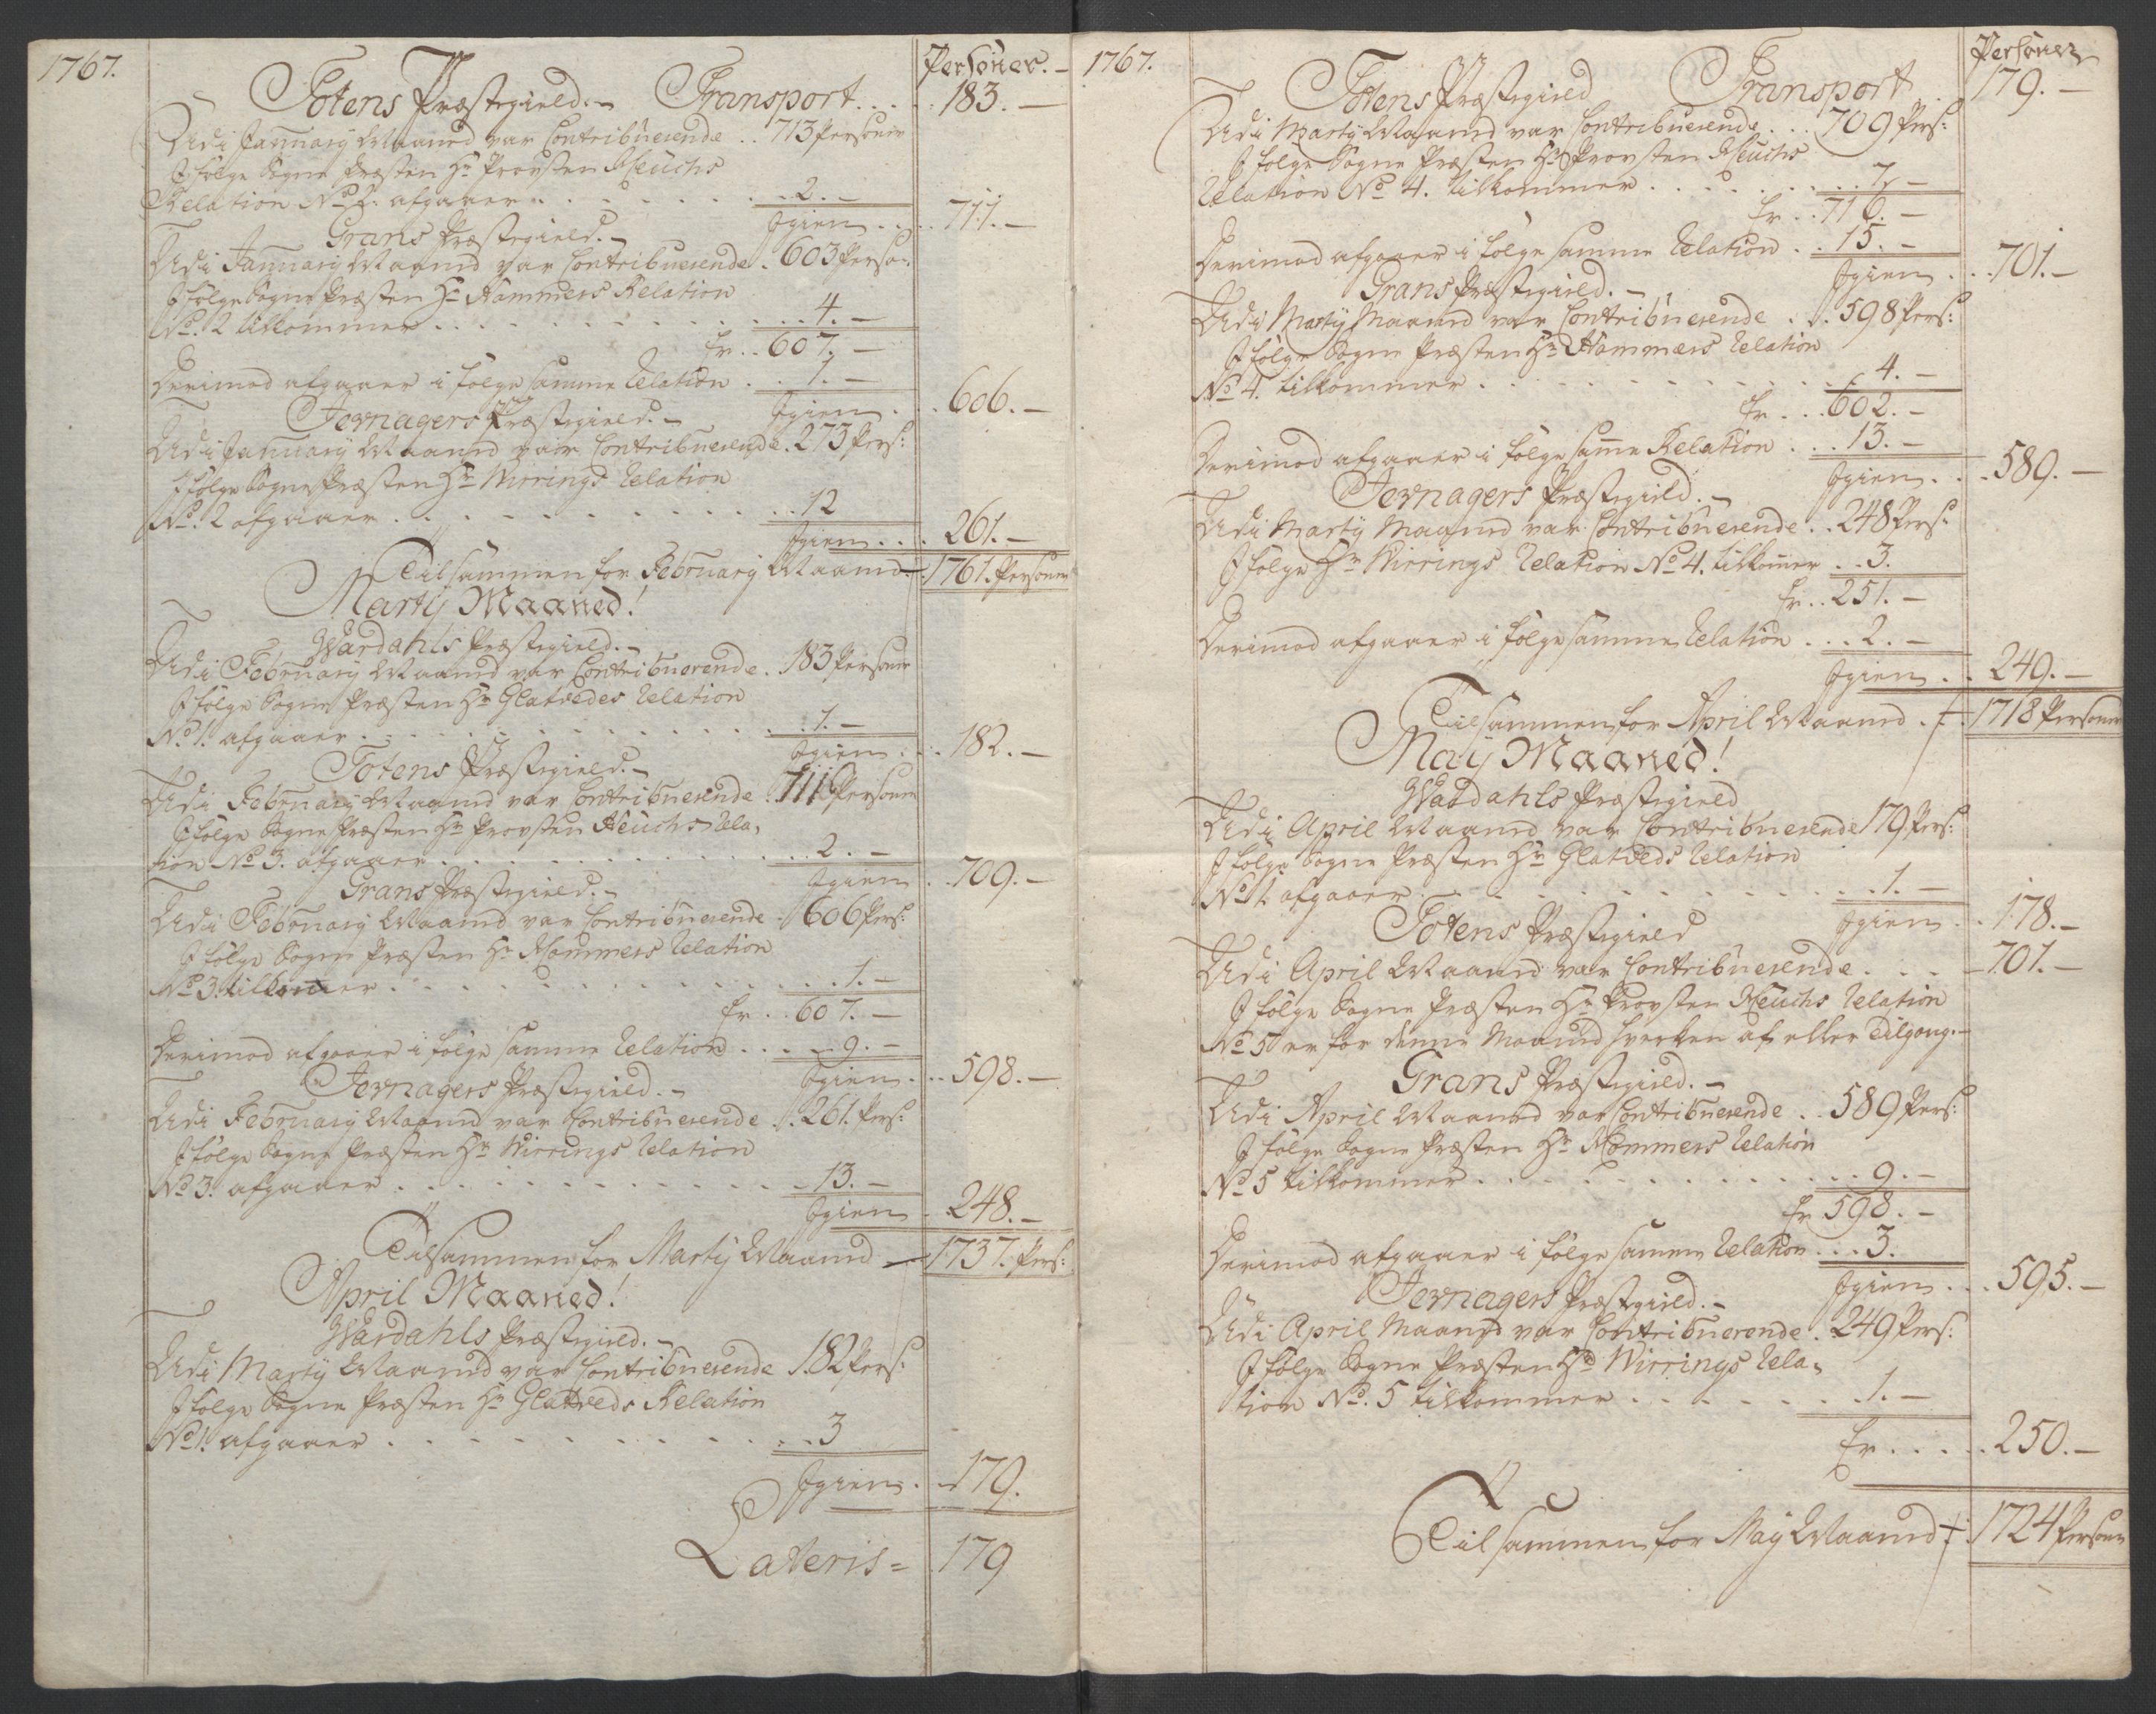 1767.
Personer.-
Totens Præstegield.- Transport . . . 183.-
Udi January Maaned var Contribuerende . . 713 Personer
I følge Sogne Præsten Hr Provsten Heuchs
Relation No 2. afgaaer . . . . . . . 2.-
Igien . . . 711.-
Grans Præstegield.-
Udi January Maaned var Contribuerende . 603 Perso:
I følge Sogne Præsten Hr Hammers Relation
No. 2 tilkommer . . . . . . . . . 4.-
Er . . 607.-
Derimod afgaaer i følge samme Relation . . 1.-
Igien . . . 606.-
Jevnagers Præstegield.-
Udi January Maaned var Contribuerende . 273 Pers:
I følge Sogne Præsten Hr Wirrings Relation
No. 2 afgaaer . . . . . . . . . . 12
Igien . . . 261.-
Tilsammen for February Maaned . 1761. Personer
Martij Maaned!
Wardahls Præstegield.-
Udi February Maaned var Contribuerende . 183 Personer
I følge Sogne Præsten Hr Glatvedes Relation
No 1. afgaaer . . . . . . . . . . 1.-
Igien . . . 182.-
Totens Præstegield.-
Udi February Maaned var Contribuerende . 711 Personer
I følge Sogne Præsten Hr Provsten Heuchs Rela,
tion No 3. afgaaer . . . . . . . . . 2.-
Igien . . 709.-
Grans Præstegield.-
Udi February Maaned var Contribuerende . 606 Pers:
I følge Sogne Præsten Hr Hammers Relation
No 3. tilkommer . . . . . . . . . 1.-
Er . . 607.-
Derimod afgaaer i følge samme Relation . . . 9.-
Igien . . . 598.-
Jevnagers Præstegield.-
Udi February Maaned var Contribuerende . . 261. Pers:
I følge Sogne Præsten Hr Wirrings Relation
No 3. afgaaer . . . . . . . . . . 13.-
Igien . 248.-
Tilsammen for Martij Maaned - 1737. Pers:
April Maaned!
Wardahls Præstegield.-
Udi Martij Maaned var Contribuerende 182 Pers:
I følge Sogne Præsten Hr Glatveds Relation
No 1. afgaaer . . . . . . . . . . 3
Igien . . 179.
Lateris = 179
1767.
Personer
Totens Præstegield Transport . 179.-
Udi Martij Maaned var Contribuerende . . . 709 Pers:
I følge Sogne Præsten Hr Provsten Heuchs
Relation No 4. tilkommer . . . . . . . 7.-
Er . . 716.-
Derimod afgaaer i følge samme Relation . . 15.-
Igien . . . 701.-
Grans Præstegield.-
Udi Martij Maaned var Contribuerende . . . 598 Pers:
I følge Sogne Præsten Hr Hammers Relation
No 4. tilkommer . . . . . . . . . 4.-
Er . . . 602.-
Derimod afgaaer i følge samme Relation . . . 13.-
Igien . . . 589.-
Jevnagers Præstegield.-
Udi Martij Maaned var Contribuerende . . 248 Pers:
I følge Hr Wirrings Relation No 4. tilkommer . . 3.
Er . . 251.-
Derimod afgaaer i følge samme Relation . . . 2.-
Igien . . 249.-
Tilsammen for April Maaned . 1718 Personer
Maij Maaned!
Wardahls Præstegield
Udi April Maaned var Contribuerende 179 Pers:
I følge Sogne Præsten Hr Glatveds Relation
No 1. afgaaer . . . . . . . . . . 1.-
Igien . . 178.-
Totens Præstegield
Udi April Maaned var Contribuerende . . . . 701.-
I følge Sogne Præsten Hr Provsten Heuchs Relation
No 5 er for denne Maaned hverken af eller Tilgang.-
Grans Præstegield.-
Udi April Maaned var Contribuerende . . 589 Pers:
I følge Sogne Præsten Hr Hammers Relation
No 5 tilkommer . . . . . . . . . . 9.-
Er 598.-
Derimod afgaaer i følge samme Relation . . . 3.
Igien . . . 595.-
Jevnagers Præstegield.-
Udi April Maaned var Contribuerende . 249 Pers:
I følge Sogne Præsten Hr Wirrings Rela,
tion No. 5 tilkommer . . . . . . . 1.-
Er . . . . . 250.-
Tilsammen for Maij Maaned . 1724 Personer